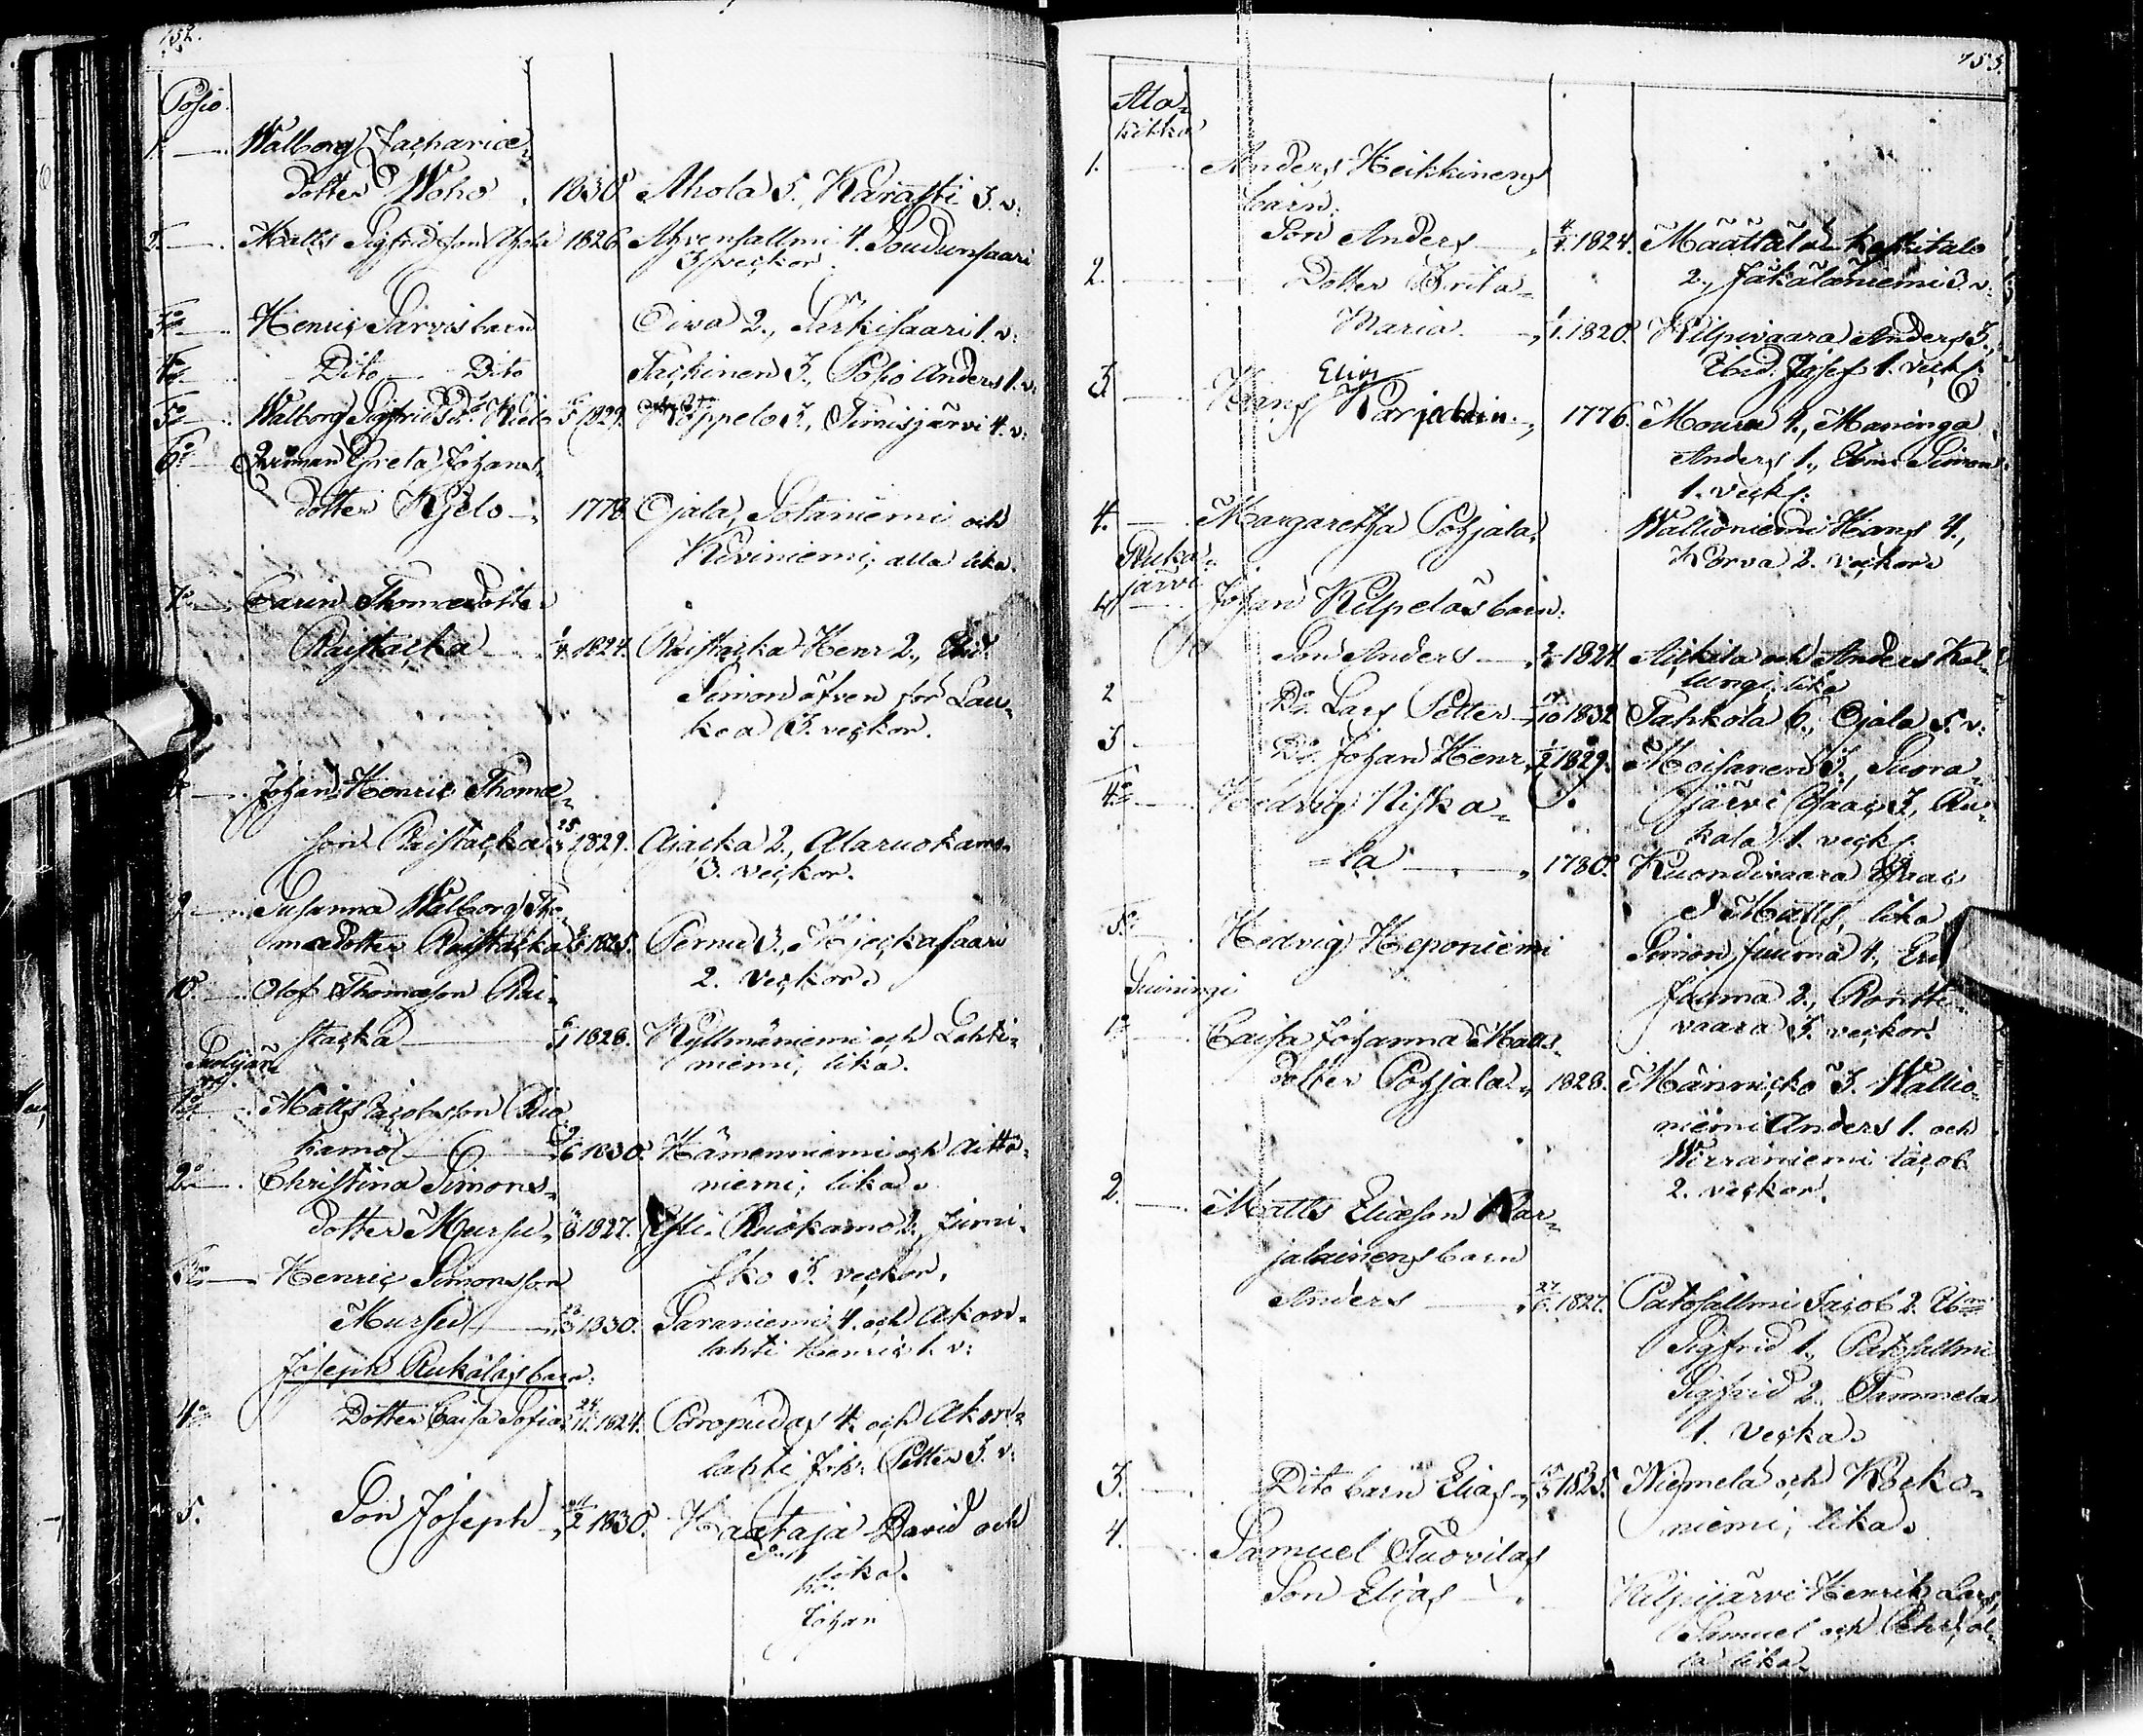 152.
Posio.
1. Walborg Zachariæ-
dotter Woho 1830 Ahola 5., Karasti 3. v:
2. Matts Sigfridsson Ahola 1826. Ahvensallmi 4. Soudunsaari
3 veckor.
3o Henric Särvis barn Oiva 2., Särkisaari 1. v:
4o Dito Dito Tackinen 3., Posio Anders 1. v:
5o Walborg Sigfridsd:r Kielo 1829. Köppelo 3., Timisjärvi 4. v:
6o Greta Johans-
dotter Kjelo 1778. Ojala, Sotaniemi och
Kiviniemi, alla lika.
7o Carin Thomædotter
Raistacka 1824. Raistacka Henr 2., Ibid.
Simon äfven för Lau-
kea 3. veckor.
8 Johan Henric Thomæ-
son Raistacka 25 1829. Ajacka 2., Alaruokamo
3. veckor.
9 Susanna Walborg Tho-
mædotter Raistacka 1825. Pernu 3., Kjeckasaari
2. veckor.
10. Olof Thomæson Rai-
stacka 1828. Kyllmäniemi och Lahti-
niemi, lika.
1o Matts Jacobsson Ruo
kamo 1830. Hämenniemi och Aitta-
niemi, lika.
2o Christina Simons-
dotter Mursu 1827. Ruokamo 2., Jumi-
sko 3. veckor.
3o Henric Simonsson
Mursu 1830. Saraniemi 4. och Akon-
lahti Henric 1. v:
Joseph Rukalas barn:
4o Dotter Caisa Sofia 24/11. 1824. Poropudas 4. och Akon-
lahti Joh: Petter 3. v:
5. Son Joseph 1830. Haataja David och
lika.
Johan
153.
Ala-
kitka
1. Anders Heikkinens
barn.
Son Anders 1824. Määttälä Keskitalo
2., Jäkäläniemi 3. v:
2. Dotter Brita
Maria 1820. Kilpivaara Anders 3.,
Ibid. Josef 1. veck.
Elias
3 Hans Karjalain. 1776. Mouru 4., Maninga
Anders 1., Simon
1. veck.
4. Margaretha Pohjala, Wallioniemi Hans 4.,
Korva 2. veckor.
Ruka-
järvi
1 Johan Kilpeläs barn:
Son Anders 1824. Aickila och Anders Kal-
lungi, lika
2 Do. Lars Petter 1832 Tahkola 6., Ojala 5. v:
3 Do. Johan Henr. 1829. Moisanen 3., Suora-
järvi Isaac 3., Ru-
kala 1. veck.
4o Hedvig Niska-
=la 1780. Kuondivaara Isaac
d Matts, lika
5o Hedvig Heponiemi Simon Juuma 4.,
Juuma 2., Rontti-
vaara 3. veckor.
Suiningi
1o Caisa Johanna Matts-
dotter Pohjala 1828. Männicko 3. Wallio-
niemi Anders 1. och
Wirraniemi Jacob
2. veckor.
2. Matts Eliæson Kar-
jalainens barn
Anders 27 1827. Patosallmi Jacob 2.
Sigfrid 1., Patosallmi
Sigfrid 2. Tammela
1. Vecka.
3. Dito barn Elias 1825. Niemelä och Kocko-
niemi, lika.
4. Samuel Tuovilas
Son Elias Kilpijärvi Henrik, Lars,
Samuel och Pehr, al-
la lika.